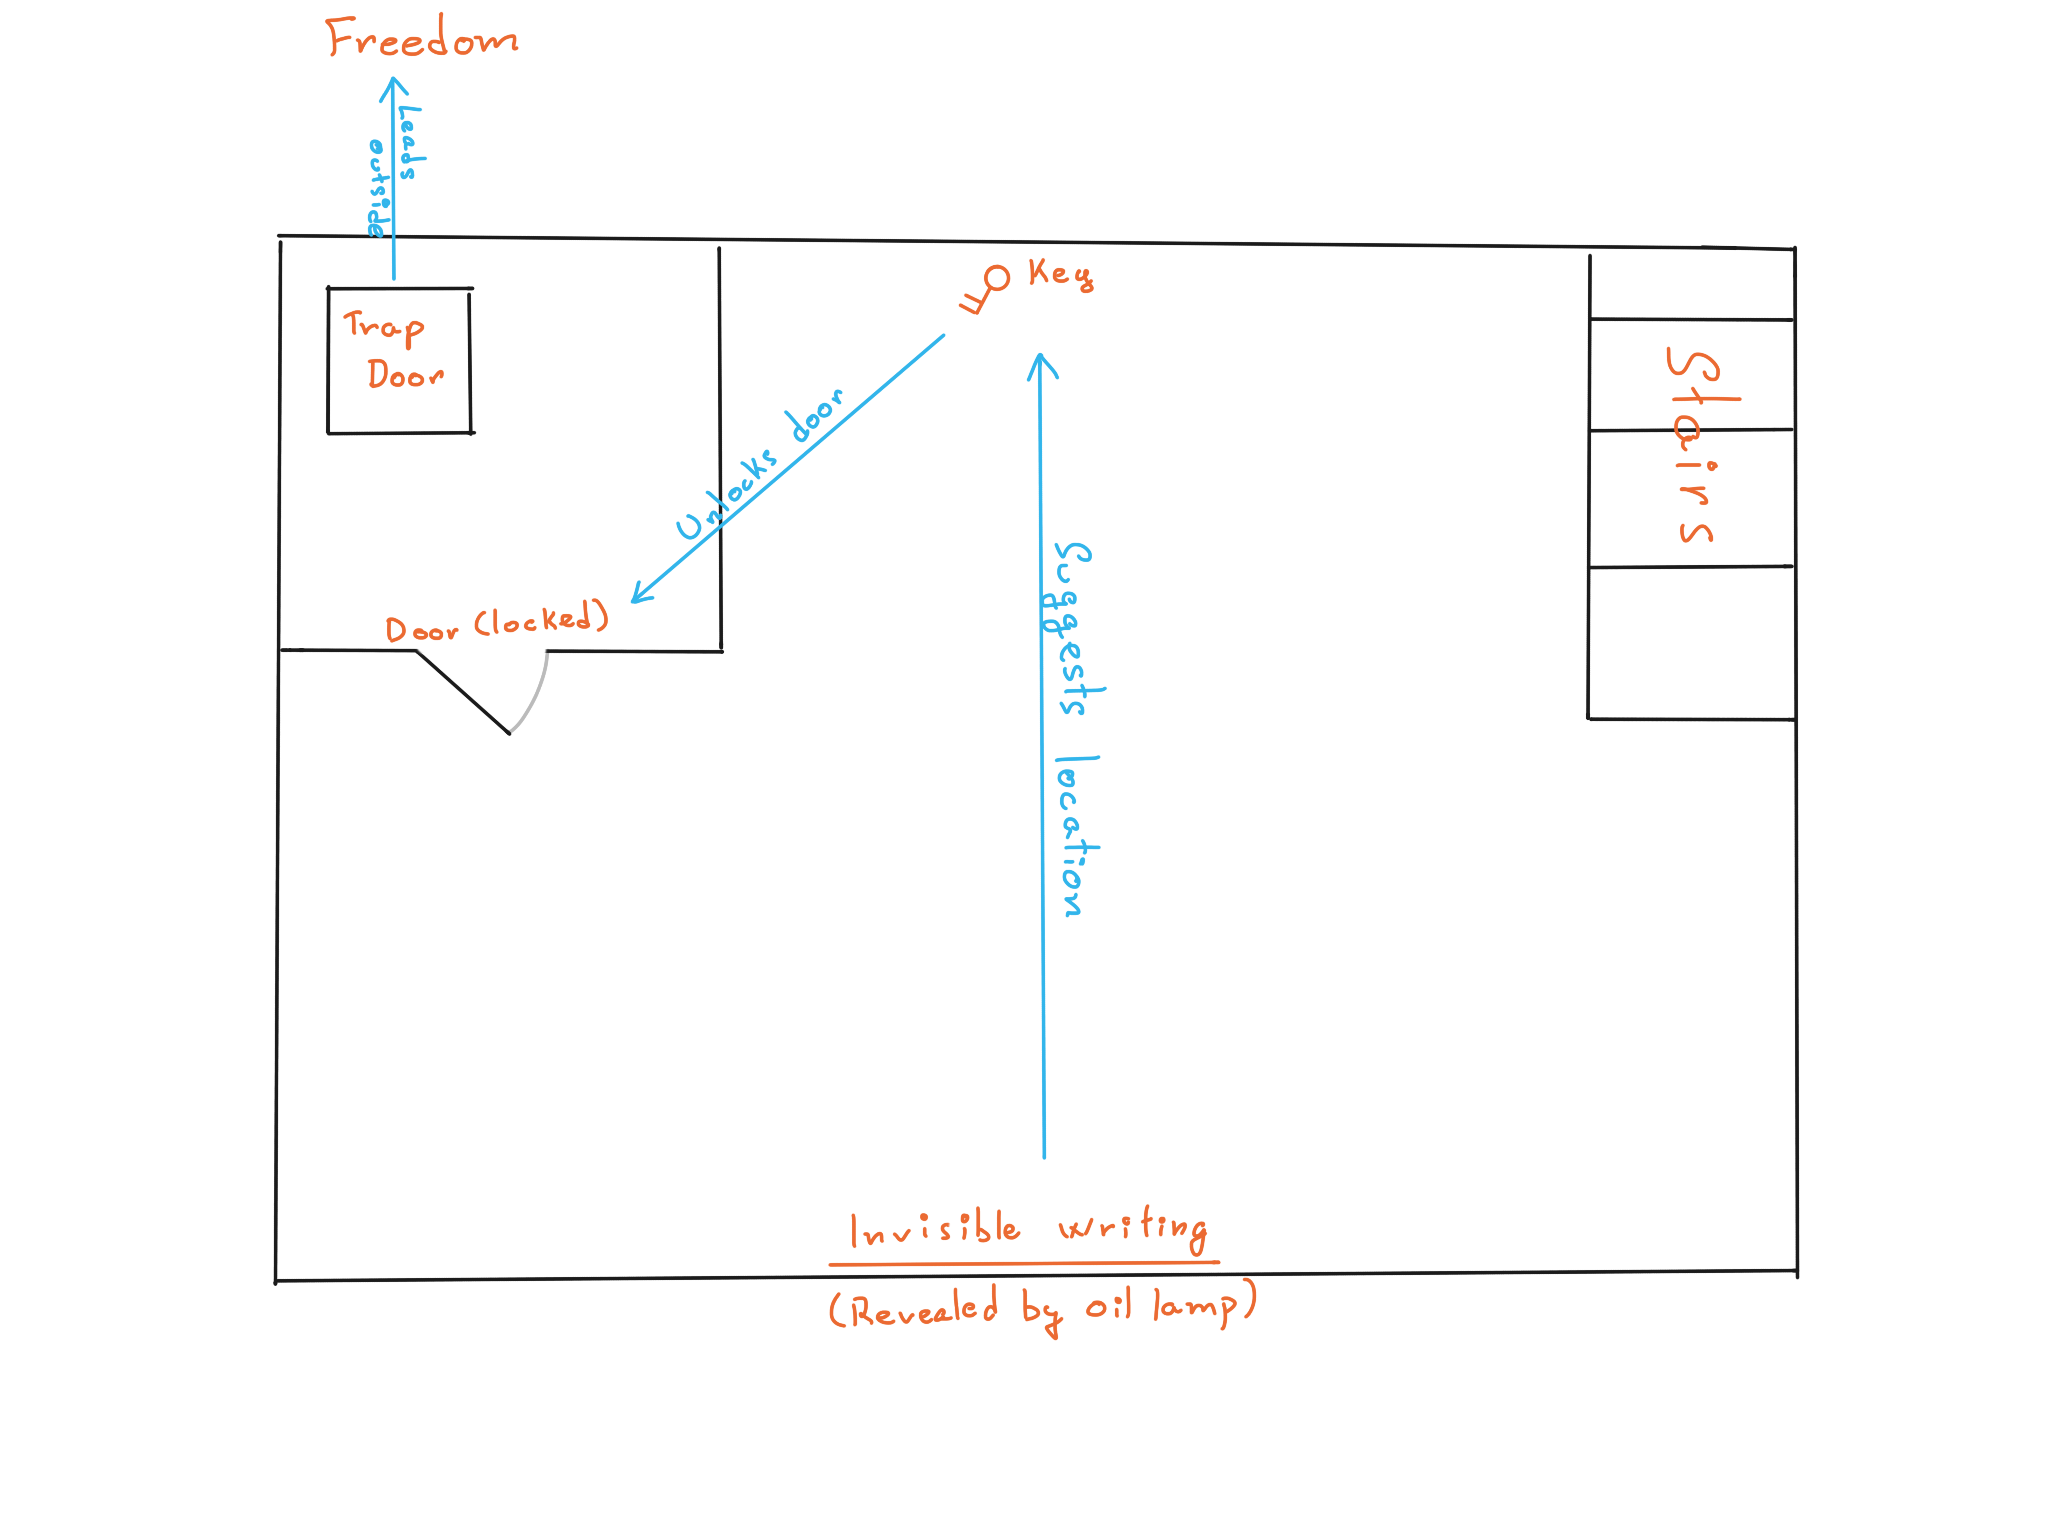 Freedom
Leads
outside
Key
Trap
Door
Stairs
Unlocks door
Door (locked)
Suggests location
Invisible writing
(Revealed by oil lamp)